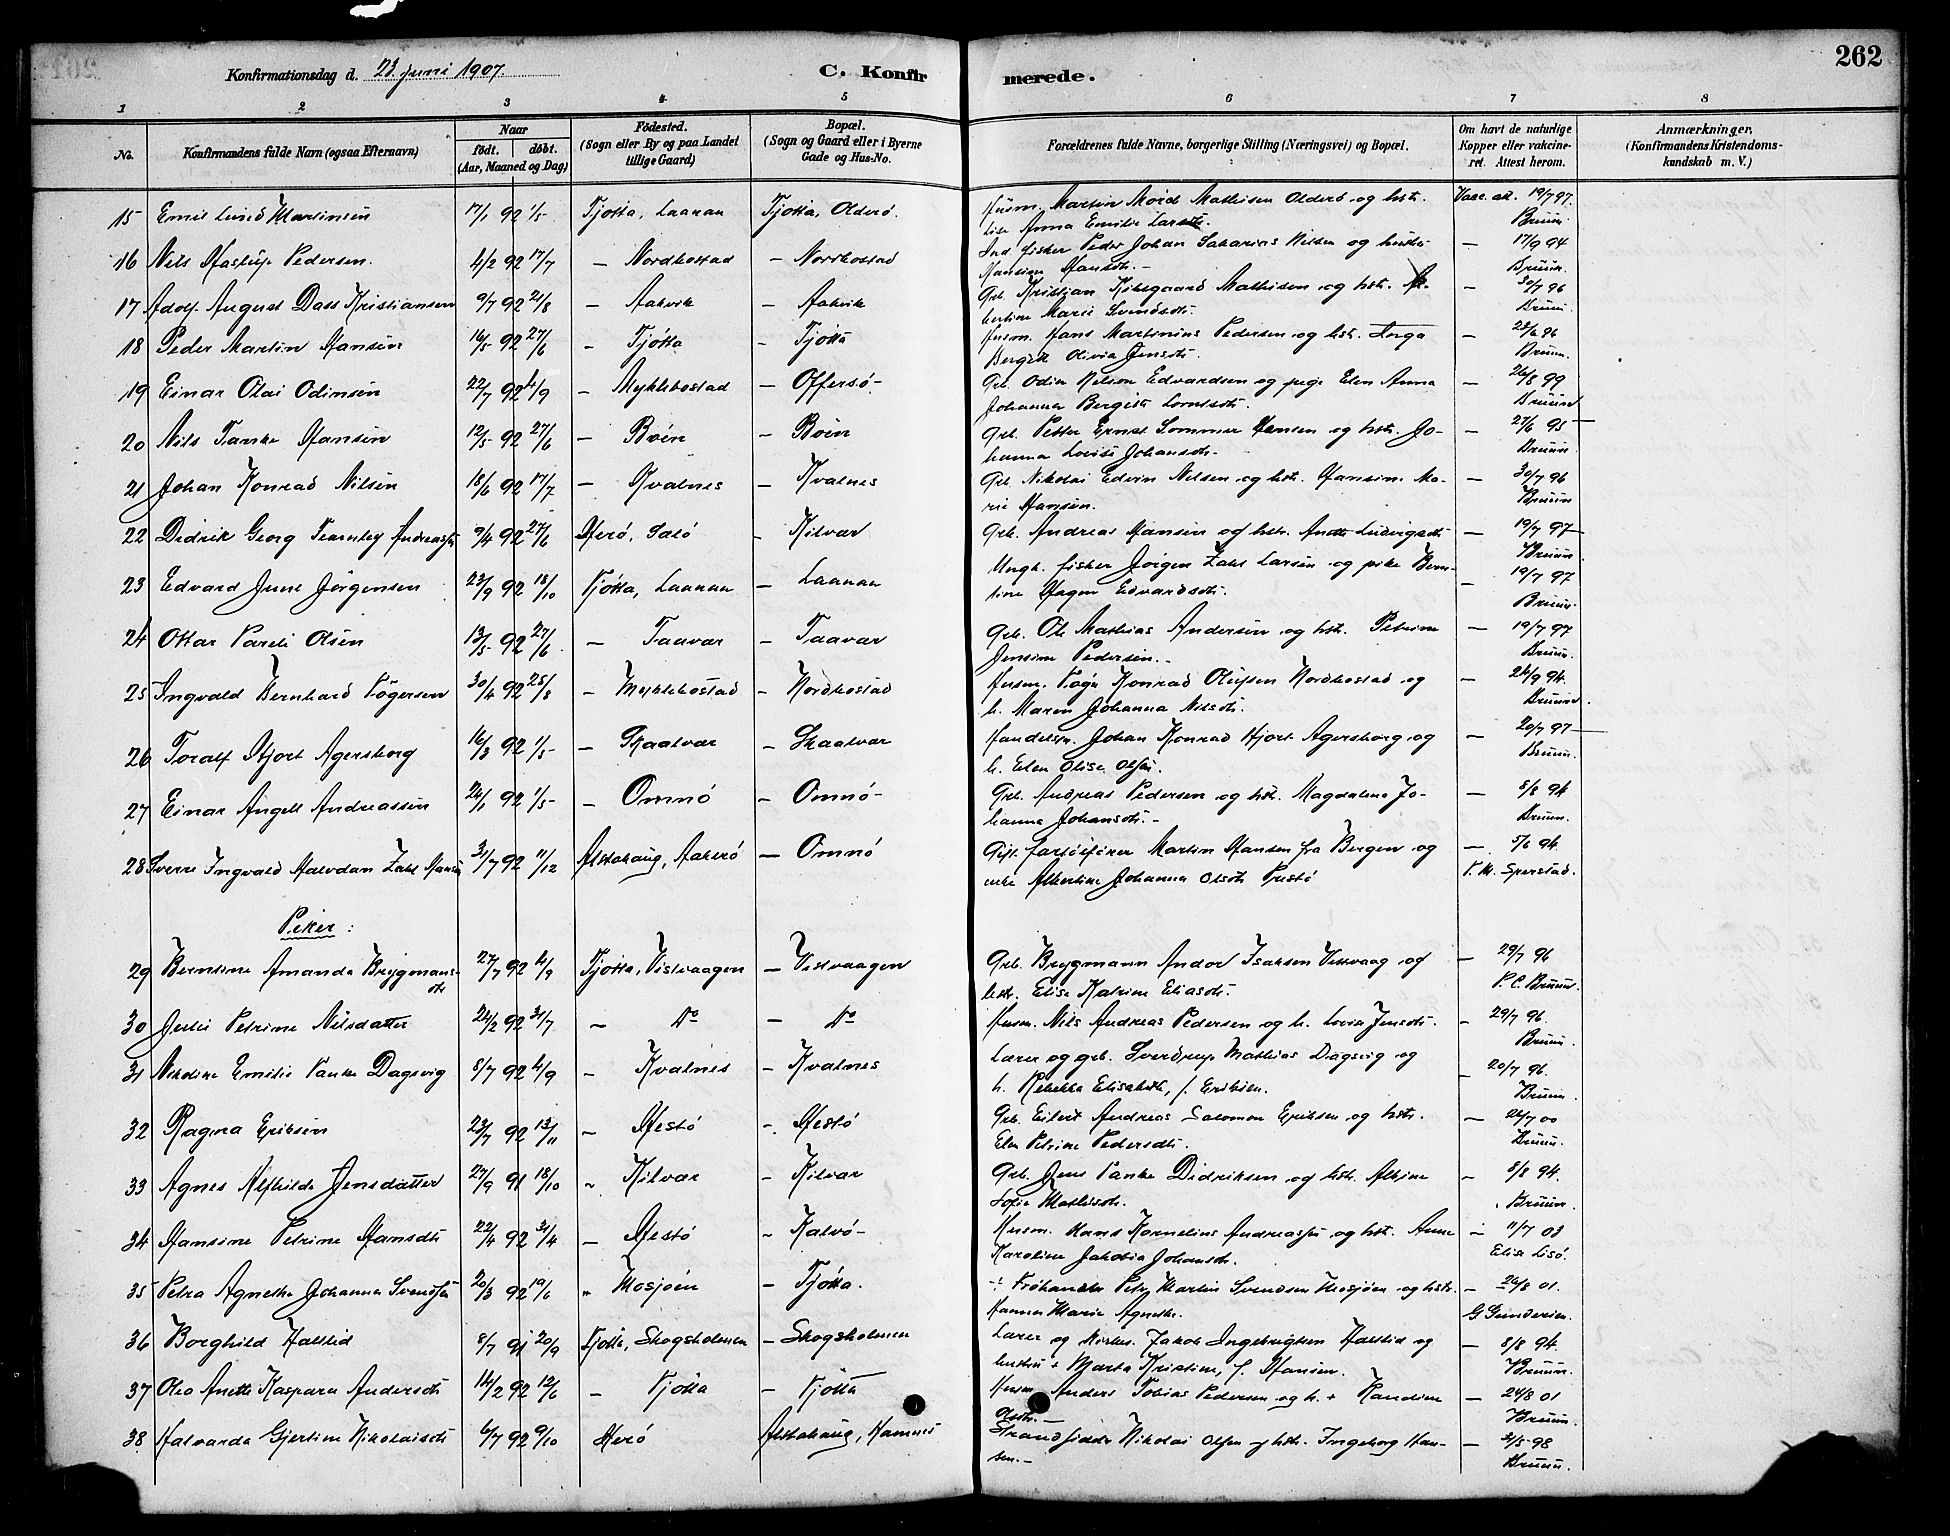 262
Konfirmationsdag d. 23 juni 1907.
C. Konfirmerede.
1 2 3 4 5 6 7 8
No. | Konfirmandens fulde Navn (ogsaa Efternavn) | Naar født. døbt. (Aar, Maaned og Dag) | Fødested. (Sogn eller By og paa Landet tillige Gaard) | Bopæl. (Sogn og Gaard eller i Byerne Gade og Hus-No. | Forældrenes fulde Navne, borgerlige Stilling (Næringsvei) og Bopæl. | Om havt de naturlige Kopper eller vakcineret. Attest herom. | Anmærkninger. (Konfirmandens Kristendomskundskab m. V.)
15 Emil Martinsen 17/1 92 1/5 Tjøtta, Laanan Tjøtta, Olderø. Husm. Martin Mathisen Olderø og hst. Vacc. att. 19/7 97.
Anna Emilie Larsdtr. Bruun
16 Nils Pedersen. 4/2 92 17/7 – Nordbostad – Nordbostad Ind. fisker Peder Johan Sakarias Nilsen og hustr. – 17/9 94
Hansine Hansdtr. – Bruun.
17 Adolf August Dass Kristiansen 9/7 92 21/8 – Aakvik – Aakvik Grb. Kristian Mathisen og hst. Al- – 30/7 96
bertine Marie Svendsdtr. Bruun.
18 Peder Martin Hansen 16/5 92 27/6 – Tjøtta – Tjøtta Husm. Hans Martinius Pedersen og hst. Inga – 28/6 96
Bergit Olivia Jensdtr. Bruun.
19 Einar Olai Odinsen 22/7 92 4/9 – Myklebostad – Offersø – Grb. Odin Nilson Edvardsen og pige Elen Anna – 26/8 99
Johanna Bergitte Bruun
20 Nils Tanke Hansen 12/5 92 27/6 – Bøen – Bøen Grb. Petter Ernst Sommer Hansen og hst. Jo- – 27/6 95
hanna Lovise Johansdtr. – Bruun
21 Johan Konrad Nilsen 18/6 92 17/7 – Kvalnes – Kvalnes Grb. Nikolai Edvin Nilsen og hst. Hansine Ma- – 30/7 96
rie Hansen. Bruun
22 Didrik Georg Tearnley Andreassen 9/4 92 27/6 Herø, Salø – Kilvær Grb. Andreas Hansen og hst. Anette Ludvigsdtr. – 19/7 97
Bruun
23 Edvard June Jørgensen 23/9 92 18/10 Tjøtta, Laanan – Laanan Ungk. fisker Jørgen Zahl Larsen og pike Bern- – 19/7 97
tine Hagen Edvardsdtr. Bruun.
24 Ottar Pareli Olsen 13/5 92 27/6 – Taavær – Taavær Grb. Ole Mathias Andersen og hst. Petrine – 19/7 97
Jensine Pedersen. – Bruun.
25 Ingvald Bernhard Tøgersen 30/4 92 28/8 – Myklebostad – Nordbostad Husm. Tøger Konrad Olufsen Nordbostad og – 24/9 94.
h. Maren Johanna Nilsdtr. Bruun.
26 Toralf Hjort Agersborg 16/3 92 1/5 – Skaalvær – Skaalvær Handelsm. Johan Konrad Hjort Agersborg og – 20/7 97
h. Elen Olise Olsen. Bruun.
27 Einar Angell Andreassen 24/1 92 1/5 – Omnø – Omnø – Grb. Andreas Pedersen og hst. Magdalena Jo- – 8/8 94
hanna Johansdtr. – Bruun.
28 Sverre Ingvald Halvdan Zahl Hansen 31/7 92 11/12 Alstahaug, Aakerø – Omnø Gift. Martin Hansen fra Bergen og – 5/6 94.
enke Albertine Johanna Olsdtr. T. M. Sperstad.
Piker:
29 Berntine Amanda Brygmans- 27/7 92 4/9 Tjøtta, Vistvaagen – Vistvaagen Grb. Brygmann Andor Isaksen Vistvaag og – 29/7 96
dtr. hst. Elise Katrine Eliasdtr. P. C. Bruun.
30 Julie Petrine Nilsdatter 24/2 92 31/7 – do – do Husm. Nils Andreas Pedersen og h. Lovise Jensdtr. – 29/7 96.
Bruun.
31 Nikoline Emilie Tanke Dagsvig 8/7 92 4/9 – Kvalnes – Kvalnes Lærer og grb. Sverdrup Mathias Dagsvig og – 20/7 96.
h. Rebekka Elisabeth, f. Eriksen. Bruun.
32 Ragna Eriksen 23/7 92 13/11 – Hestø – Hestø Grb. Eilert Andreas Salomon Eriksen og hst. – 26/7 00
Elen Petrine Pedersdtr. Bruun.
33 Agnes Alfhilde Jensdatter 27/9 91 18/10 – Kilvær – Kilvær Grb. Jens Tanke Didriksen og hst. Albine – 8/8 94.
Sofie Mathisdtr. Bruun.
34 Hansine Petrine Hansdtr. 22/4 92 31/4 – Hestø – Kalvø – Husm. Hans Kornelius Andreassen og hst. Anne – 11/7 03
Karoline Jakobia Johansdtr. Elise Lisø.
35 Petra Agnethe Johanna Svendsen 20/3 92 19/6 – Mosjøen – Tjøtta. Frøhandler Peter Martin Svendsen Mosjøen og hst. – 26/8 01.
Hanna Marie Agnethe. G. Gundersen.
36 Borghild Halslid 8/7 91 20/9 Tjøtta, Skogsholmen – Skogsholmen Lærer og Kirkes. Jakob Ingebrigtsen Halslid og – 8/8 94.
hustru + Marta Kristine, f. Hansen. Bruun.
37 Olea Anette Kaspara Andersdtr. 14/2 92 12/6 – Tjøtta – Tjøtta Husm. Anders Tobias Pedersen og h. + Randine – 24/8 01
Olsdtr. – Bruun.
38 Halvarda Gjertine Nikolaisdtr. 6/7 92 9/10 Herø Alstahaug, Hamnes Strandsidder Nikolai Olsen og hst. Ingeborg Han- – 2/5 98
sen. – Bruun.